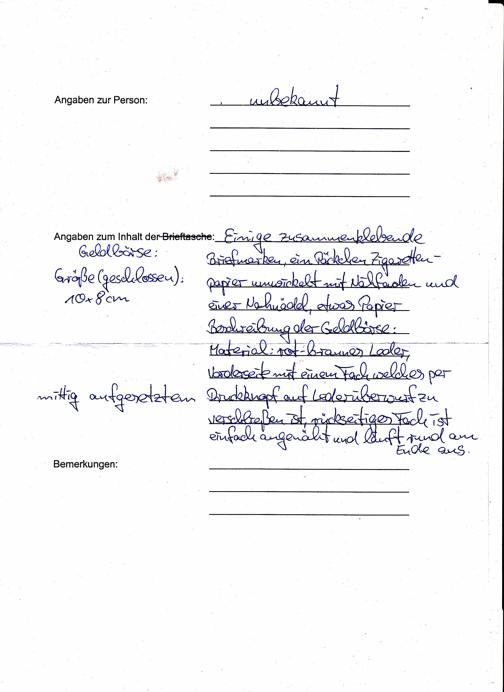 Angaben zur Person: unbekannt
Angaben zum Inhalt der Brieftasche: Einige zusammenklebende
Geldbörse:
Größe (geschlossen):
10x8cm
Briefmarken, ein Päckchen Zigaretten-
papier umwickelt mit Nähfaden und
einer Nähnadel, etwas Papier
Beschreibung der Geldbörse:
Material: rot-braunes Leder,
Vorderseite mit einem Fach welches per
mittig aufgesetztem Druckknopf auf Lederüberwurf zu
verschließen ist, rückseitiges Fach ist
einfach angenäht und läuft rund am
Ende aus.
Bemerkungen: